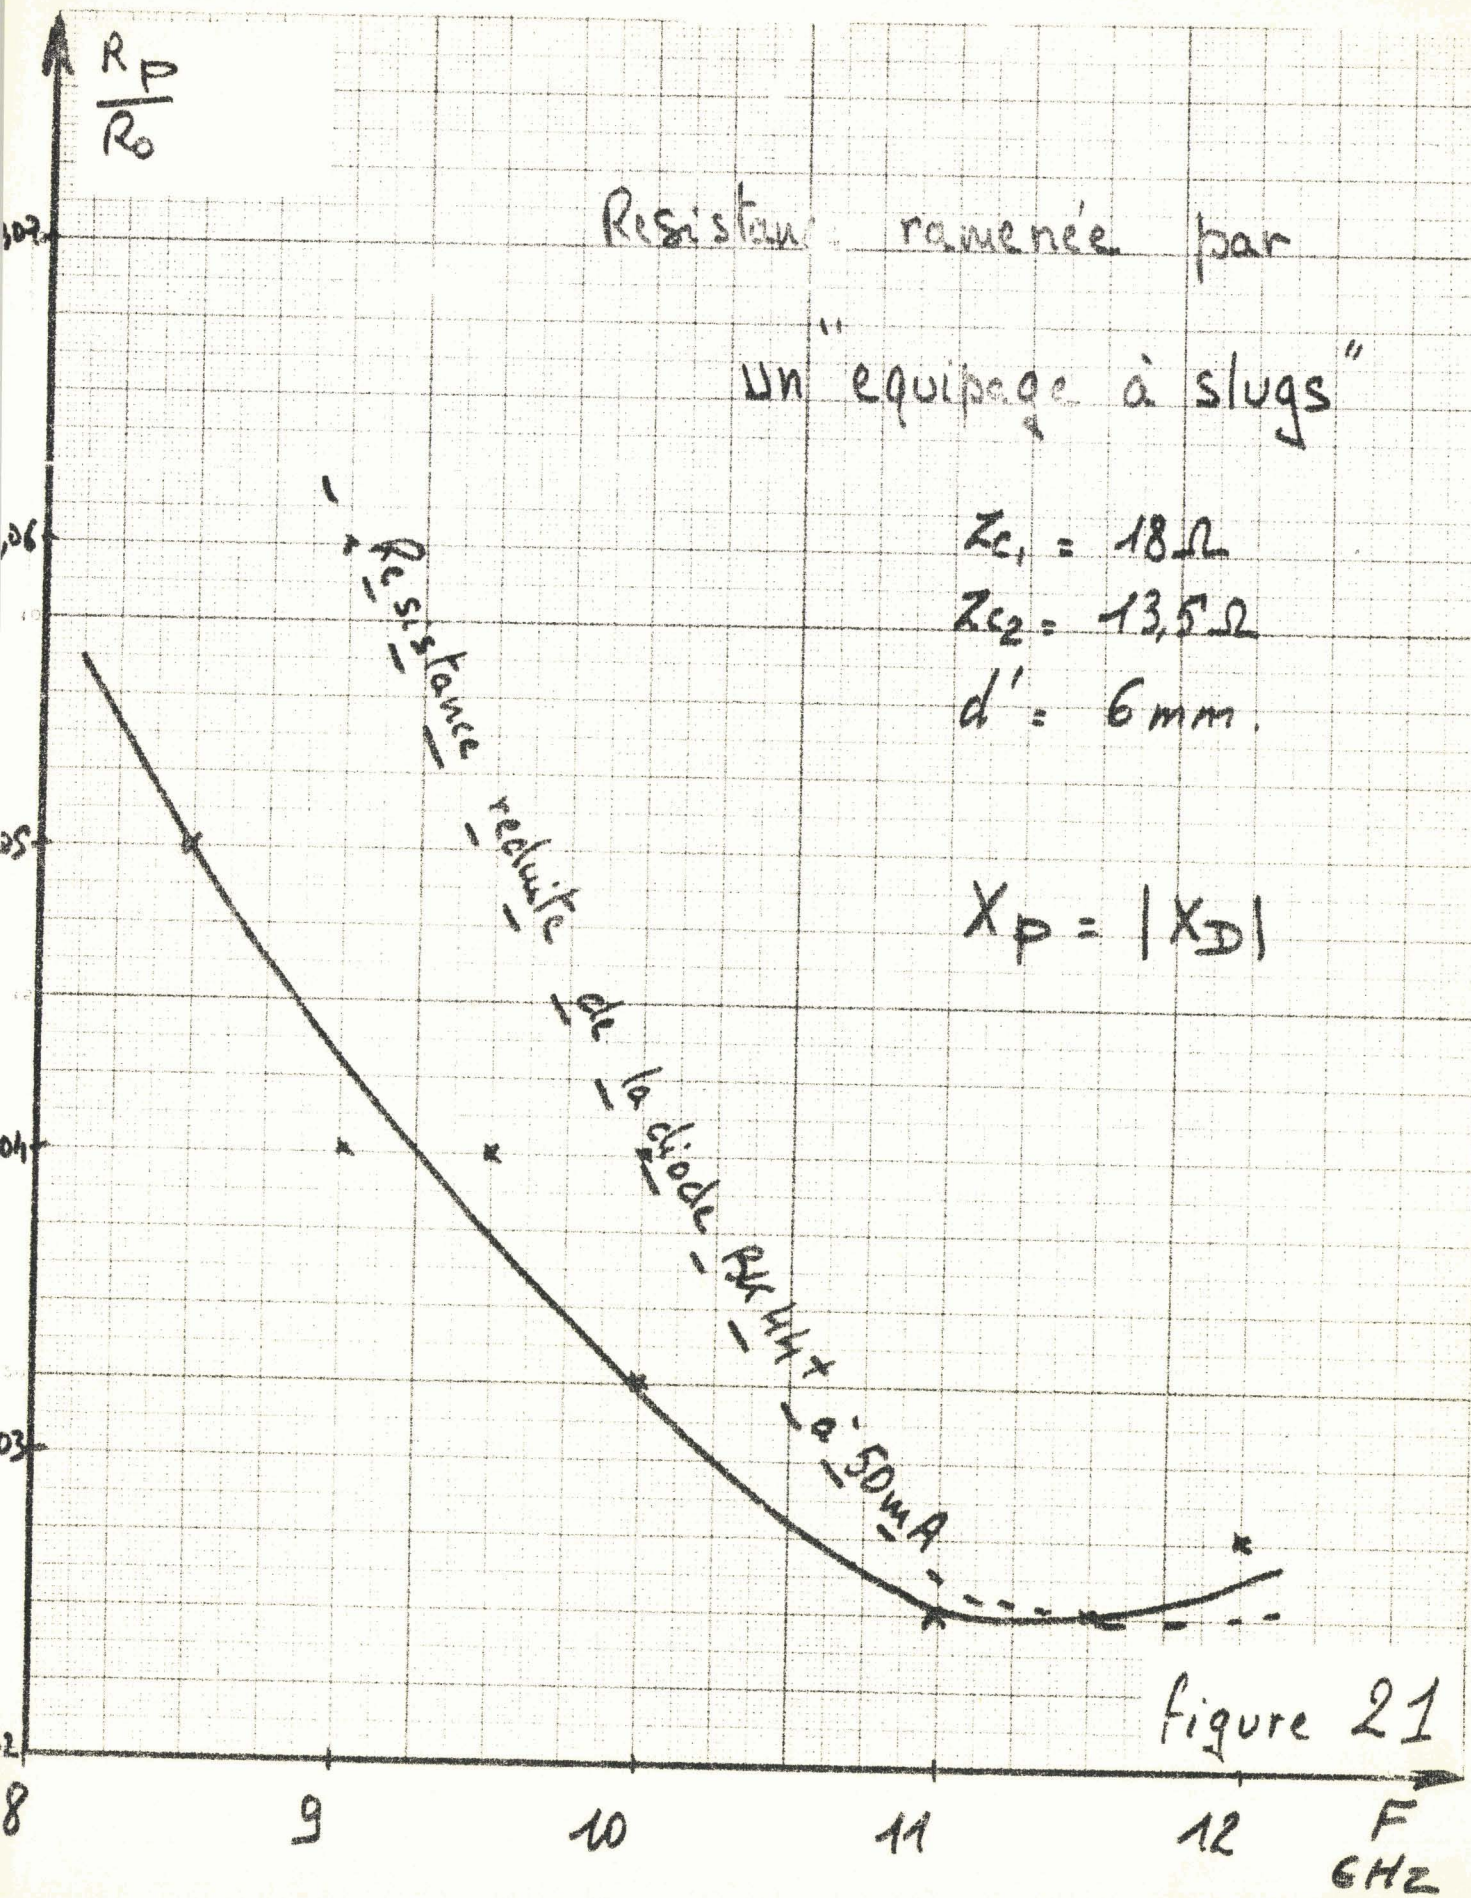 Rp
Ro
Resistan ramenée par
un "equipage à slugs"
Zc1 = 18Ω
Zc2 = 13,5Ω
d' = 6mm.
Xp = |XD|
Resistance reduite de la diode à 50mA
,07
,06
05
04
03
2
8 9 10 11 12 F
GHz
figure 21